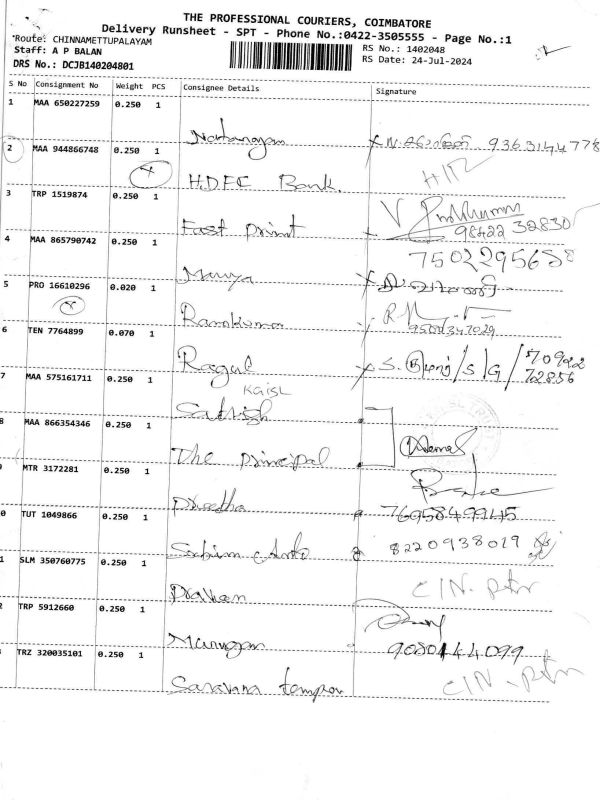 THE PROFESSIONAL COURIERS, COIMBATORE
Delivery Runsheet - SPT - Phone No.:0422-3505555 - Page No.:1
Route: CHINNAMETTUPALAYAM
RS No.: 1402048
Staff: A P BALAN
RS Date: 24-Jul-2024
DRS No.: DCJB140204801
S No Consignment No Weight PCS Consignee Details Signature
1 MAA 650227259 0.250 1
9363144778
2 MAA 944866748 0.250 1
H.D.F.C Bank.
3 TRP 1519874 0.250 1
Fast print 98422 32830
4 MAA 865790742 0.250 1
7502295688
Manya
5 PRO 16610296 0.020 1
Ramkumar
6 TEN 7764899 0.070 1
Ragul S. /S/G/ 70922
72856
KGiSL
7 MAA 575161711 0.250 1
Sathish
8 MAA 866354346 0.250 1
The principal
9 MTR 3172281 0.250 1
Preetha 7695849945
0 TUT 1049866 0.250 1
8220938019
1 SLM 350760775 0.250 1
CIN.
2 TRP 5912660 0.250 1
Murugan
TRZ 320035101 0.250 1
Saravana tempo CIN.